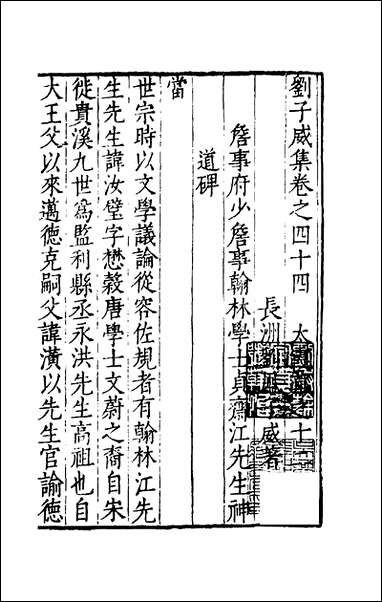 劉子威集卷之四十四　太　十
長洲　　子威著
詹事府少詹事翰林學士貞齋江先生神
道碑
當
世宗時以文學議論從容佐規者有翰林江先
生先生諱汝璧字懋穀唐學士文蔚之裔自宋
徙貴溪九世爲監利縣丞永洪先生高祖也自
大王父以來邁德克嗣父諱潢以先生官諭德